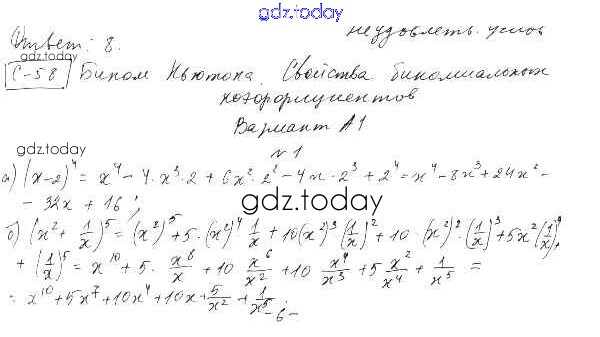 gdz.today
неудовлетв. услов
Ответ: 8.
gdz.today
С-58 Бином Ньютона. Свойства биномиальных
коэффициентов
Вариант А1
gdz.today
№1
а) (x-2)⁴ = x⁴ - 4·x³·2 + 6x²·2² - 4x·2³ + 2⁴ = x⁴ - 8x³ + 24x² -
- 32x + 16;
gdz.today
б) (x² + 1/x)⁵ = (x²)⁵ + 5·(x²)⁴ 1/x + 10(x²)³(1/x)² + 10·(x²)²·(1/x)³ + 5x²(1/x)⁴
+ (1/x)⁵ = x¹⁰ + 5·x⁸/x + 10 x⁶/x² + 10 x⁴/x³ + 5 x²/x⁴ + 1/x⁵ =
= x¹⁰ + 5x⁷ + 10x⁴ + 10x + 5/x² + 1/x⁵.
- 6 -